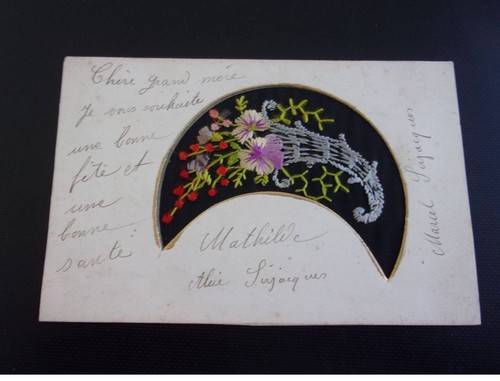 Chère grand mère
Je vous souhaite
une bonne
fête et
une
bonne
santé
Mathilde
Alice Sirjacques
Marcel Sirjacques